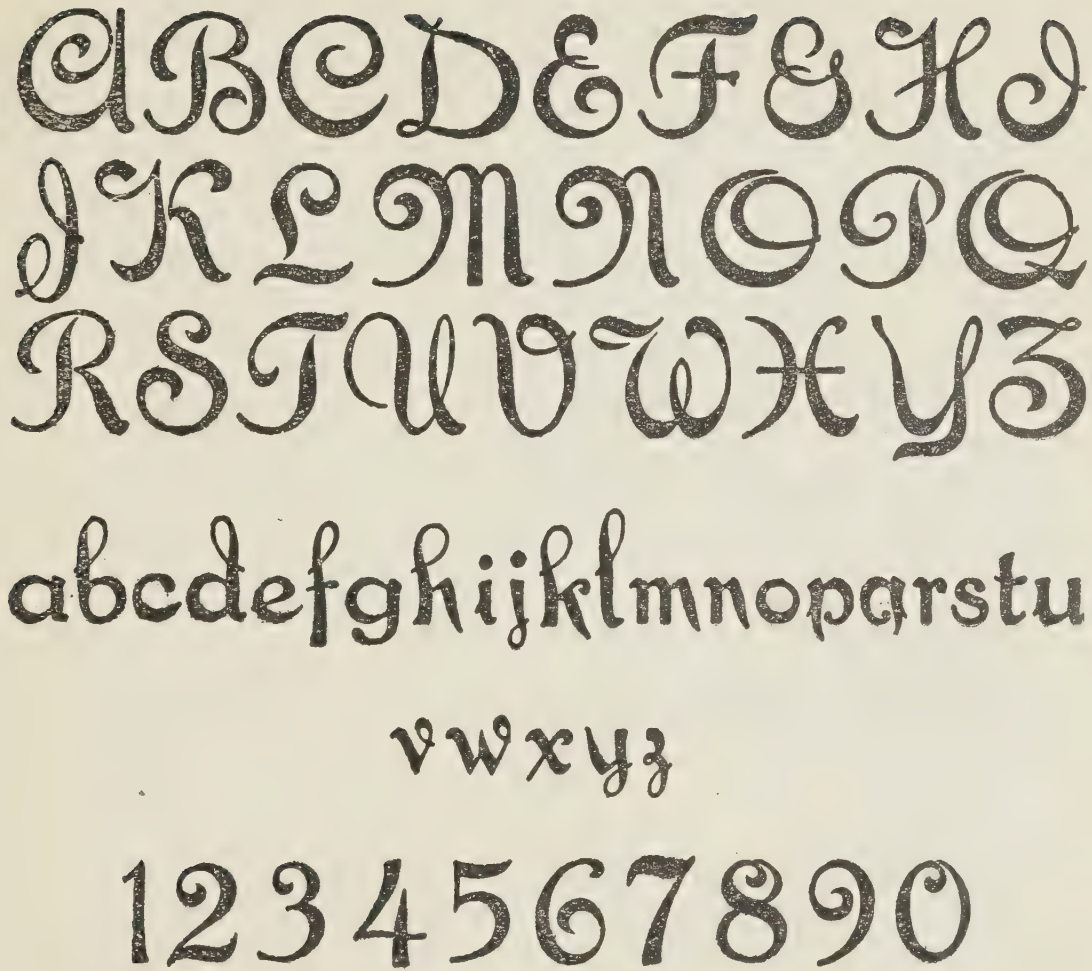 ABCDEFGHI
JKLMNOPQ
RSTUVWXYZ
abcdefghijklmnopqrstu
vwxyz
1234567890